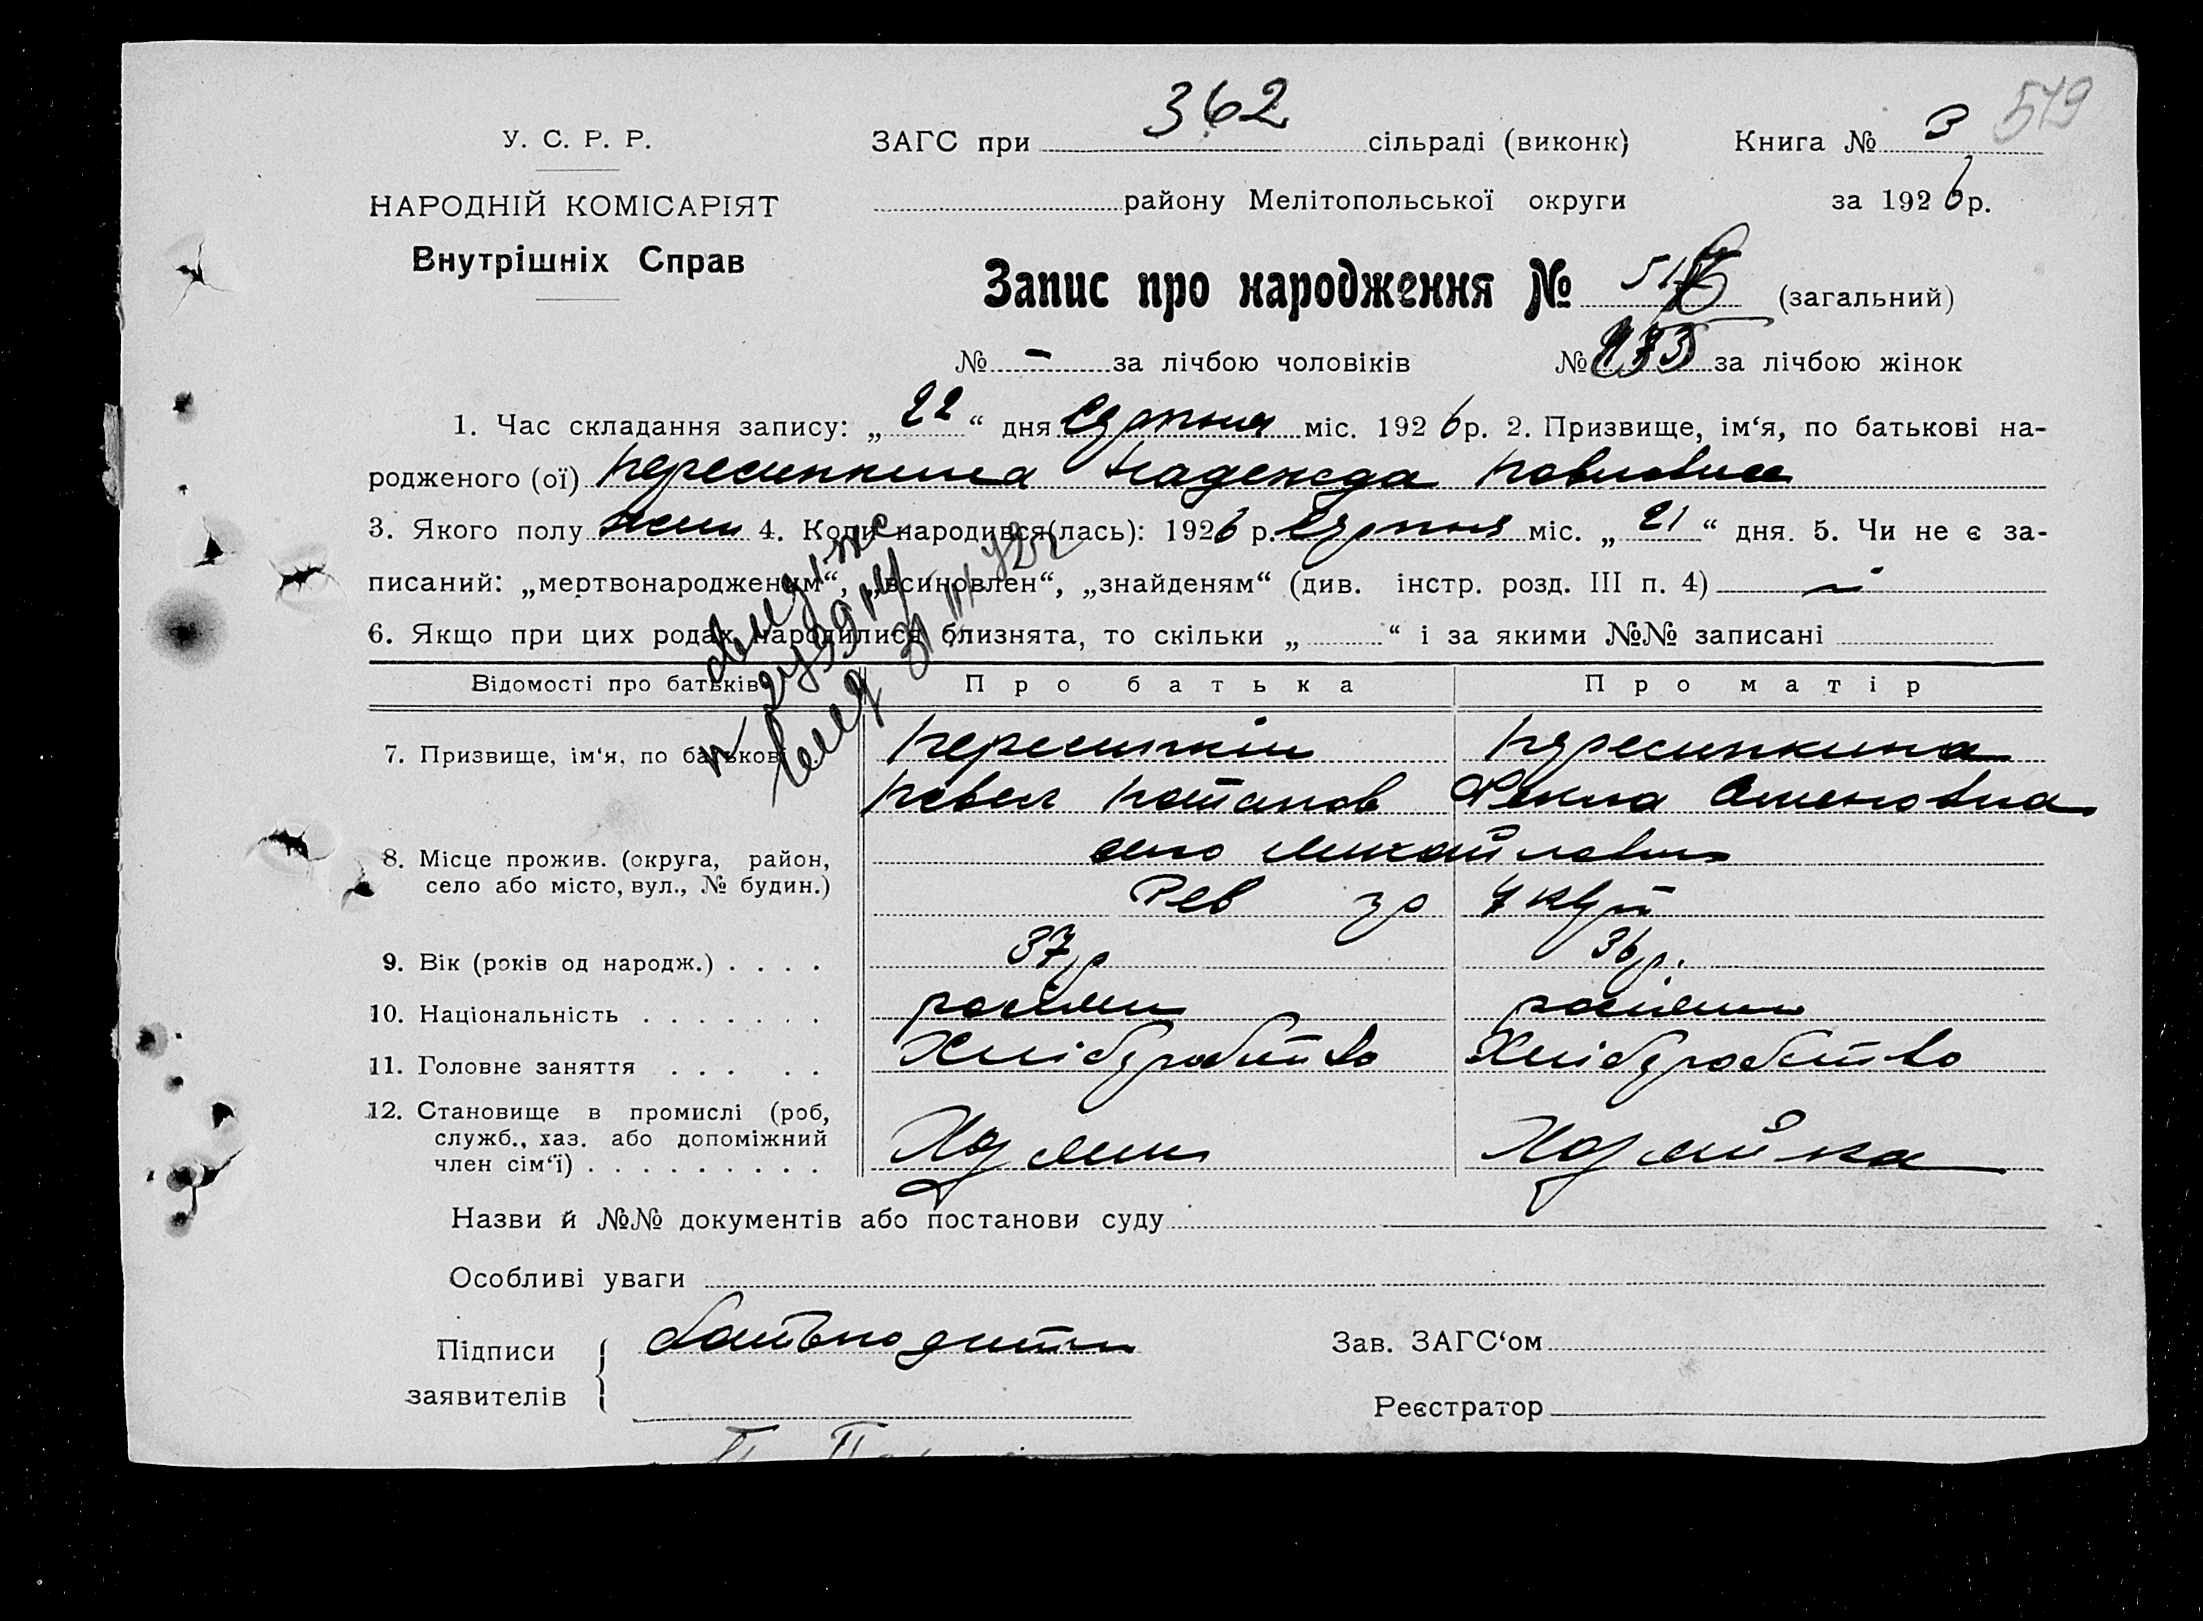 519
У. С. Р. Р.
НАРОДНІЙ КОМІСАРІЯТ
Внутрішніх Справ
362
ЗАГС при сільраді (виконк) Книга № 3
району Мелітопольської округи за 1926 р.
Запис про народження № (загальний)
№ - за лічбою чоловіків № за лічбою жінок
1. Час складання запису: „22“ дня Серпня міс. 1926 р. 2. Призвище, ім‘я, по батькові на-
родженого (ої) Пересипкина Надежда Павловна
3. Якого полу жен 4. Коли народився(лась): 1926 р. Серпня міс. „21“ дня. 5. Чи не є за-
писаний: „мертвонародженим“, „всиновлен“, „знайденям“ (див. інстр. розд. III п. 4)
6. Якщо при цих родах народилися близнята, то скільки „ “ і за якими №№ записані
Відомості про батьків Про батька Про матір
7. Призвище, ім‘я, по батькові Пересипкін Пересипкина
Павел Потапов Фекла Семеновна
8. Місце прожив. (округа, район, село або місто, вул., № будин.) село Михайлівка
Рев
9. Вік (років од народж.) . . . . 37 р 36 р.
10. Національність . . . . . . . росіян росіян
11. Головне заняття . . . . . Хліборобство Хліборобство
12. Становище в промислі (роб, служб., хаз. або допоміжний член сім‘ї) . . . . . . . . . Хазяин Хазяйка
Назви й №№ документів або постанови суду
Особливі уваги
Підписи заявителів батько дитини
Зав. ЗАГС‘ом
Реєстратор